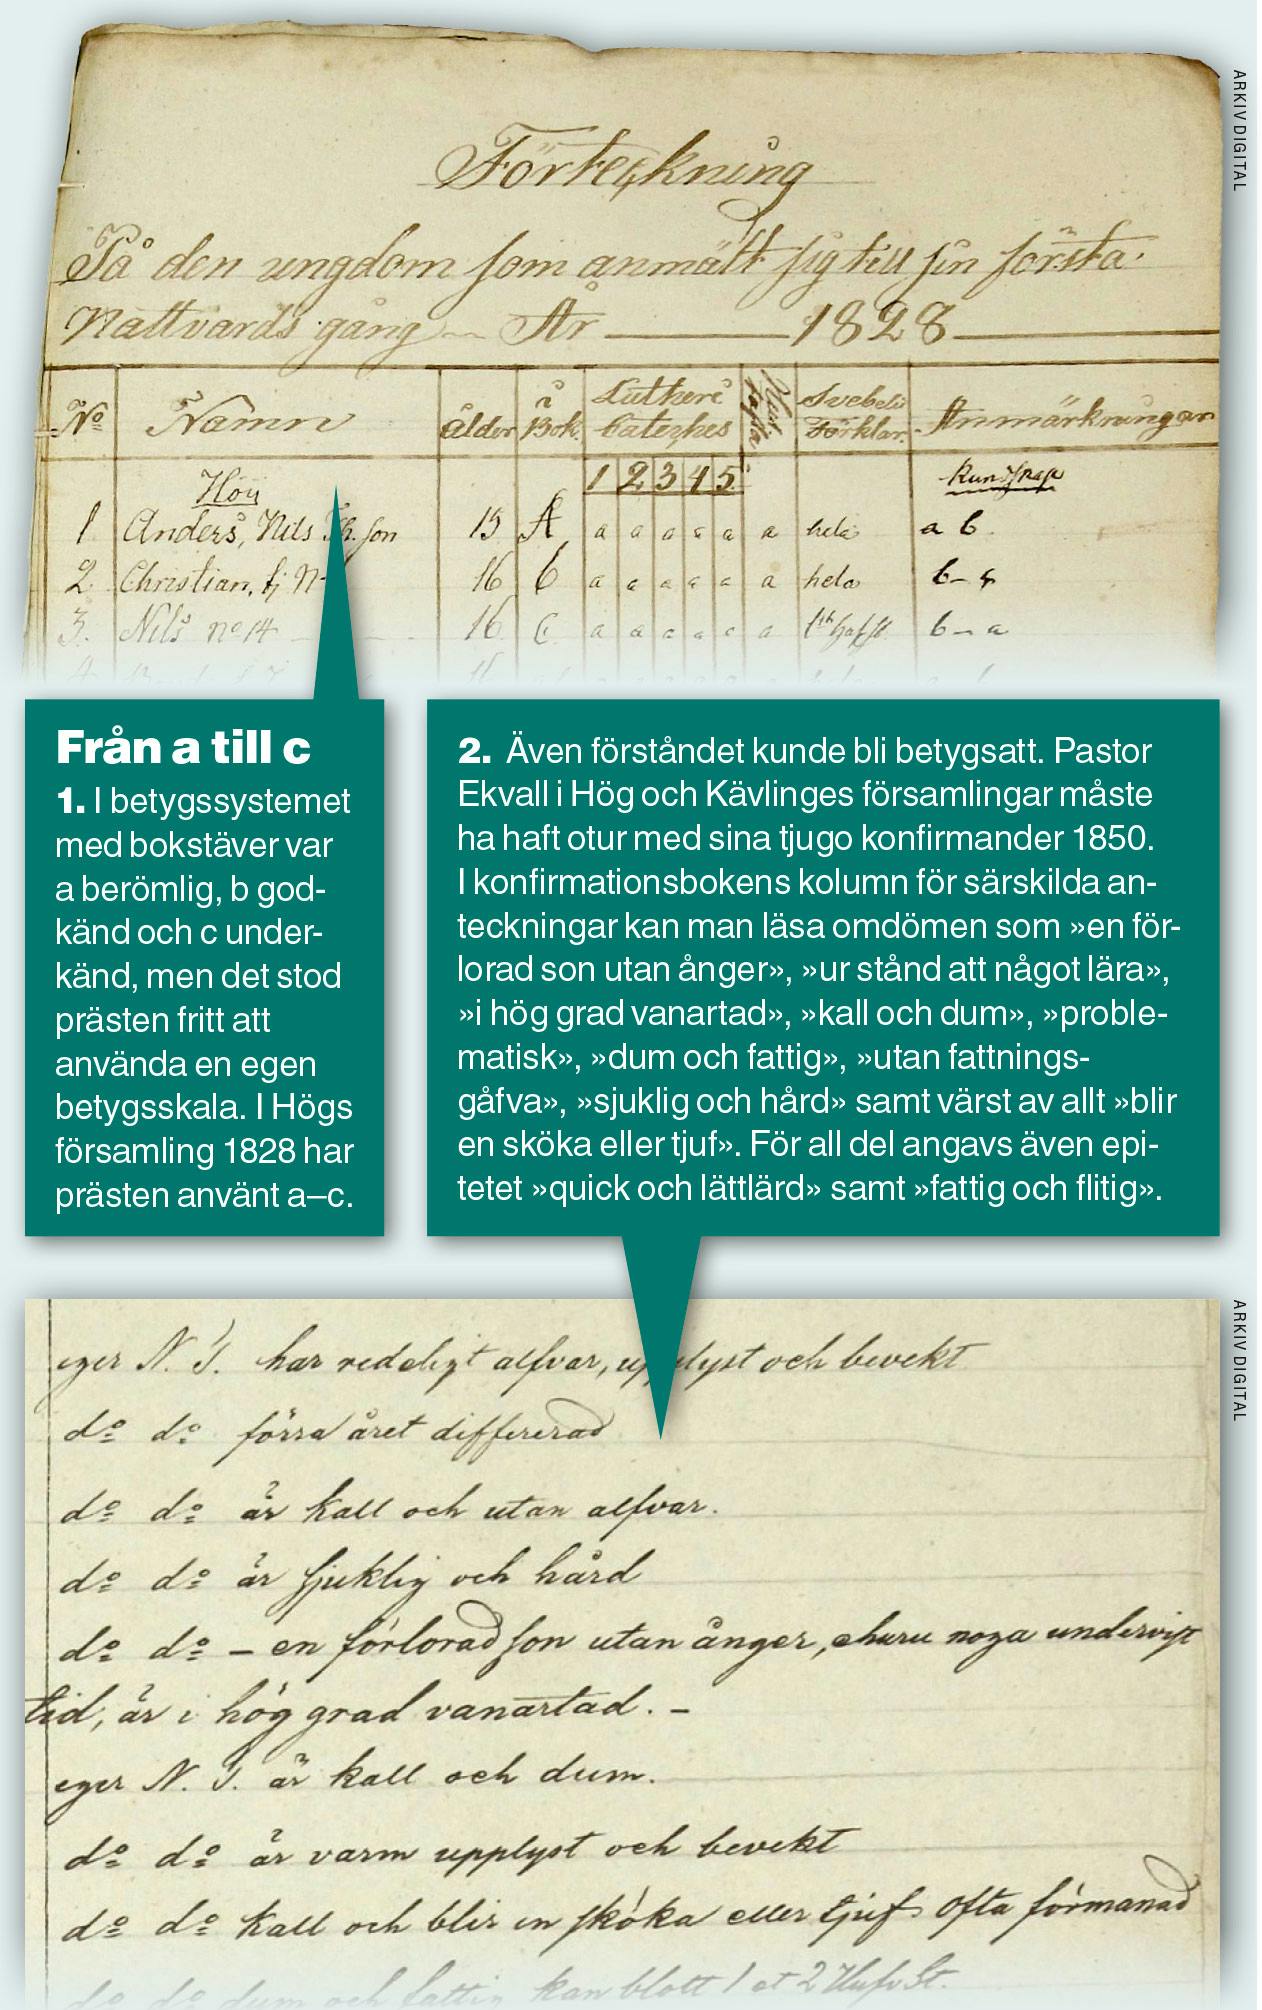 ARKIV DIGITAL
Förteckning
På den ungdom som anmält sig till sin första
Nattvards gång — År — 1828 —
No Namn ålder i Bok. Lutheri Catekes Svebelii Förklar. Anmärkningar
1 2 3 4 5 Kundskap
Hög
1 Anders, Nils son 15 A a a a a a a hela a b
2 Christian, 16 b a a a a a a hela b –
3. Nils no 14 16 c a a a a a a b – a
Från a till c
1. I betygssystemet
med bokstäver var
a berömlig, b god-
känd och c under-
känd, men det stod
prästen fritt att
använda en egen
betygsskala. I Högs
församling 1828 har
prästen använt a–c.
2. Även förståndet kunde bli betygsatt. Pastor
Ekvall i Hög och Kävlinges församlingar måste
ha haft otur med sina tjugo konfirmander 1850.
I konfirmationsbokens kolumn för särskilda an-
teckningar kan man läsa omdömen som »en för-
lorad son utan ånger», »ur stånd att något lära»,
»i hög grad vanartad», »kall och dum», »proble-
matisk», »dum och fattig», »utan fattnings-
gåfva», »sjuklig och hård» samt värst av allt »blir
en sköka eller tjuf». För all del angavs även epi-
tetet »quick och lättlärd» samt »fattig och flitig».
ARKIV DIGITAL
eger N. T. har redeligt alfvar, upplyst och bevekt
do do förra året differerad
do do är kall och utan alfvar.
do do är sjuklig och hård
do do – en förlorad son utan ånger, ehuru noga undervist
tid, är i hög grad vanartad. –
eger N. T. är kall och dum.
do do är varm upplyst och bevekt
do do kall och blir en sköka eller tjuf. Ofta förmanad
do do dum och fattig kan blott 1 et 2 Hufv St.